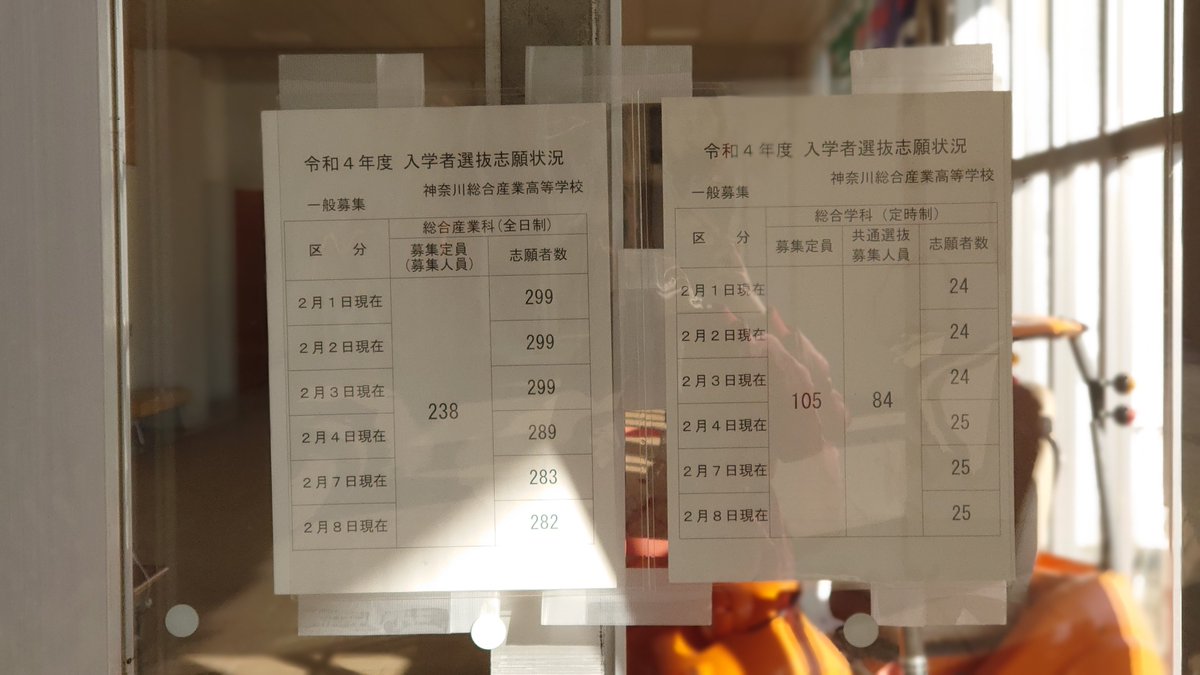 令和４年度 入学者選抜志願状況
神奈川総合産業高等学校
一般募集
総合産業科(全日制)
区 分
募集定員
(募集人員)
志願者数
２月１日現在 299
２月２日現在 299
２月３日現在 299
238
２月４日現在 289
２月７日現在 283
２月８日現在 282
令和４年度 入学者選抜志願状況
神奈川総合産業高等学校
一般募集
総合学科（定時制）
区 分
募集定員
共通選抜
募集人員
志願者数
２月１日現在 24
２月２日現在 24
２月３日現在 24
105 84
２月４日現在 25
２月７日現在 25
２月８日現在 25